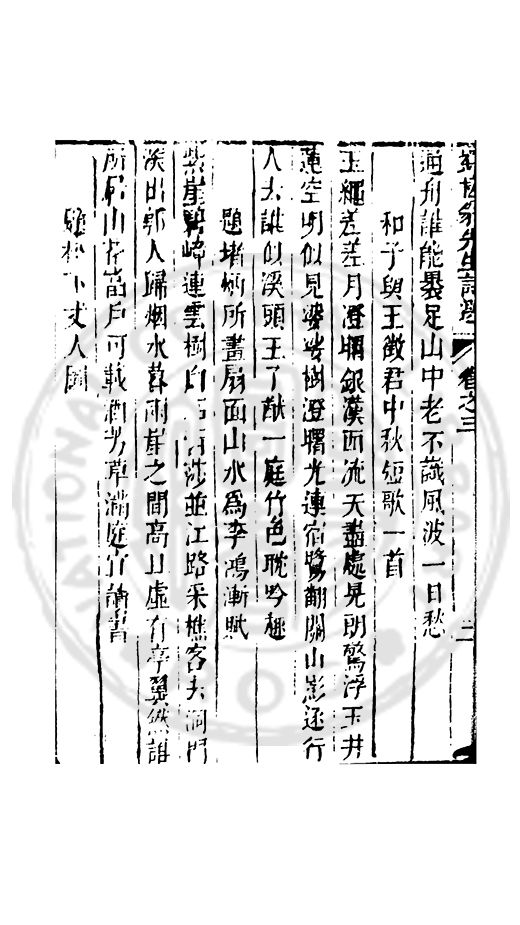 先生詩選 卷之三 二
通舟誰能裹足山中老不識風波一日愁
和子與王徵君中秋短歌一首
玉繩差差月澄曙銀漢西流天盡處見朗驚浮玉井
蓮空明似見婆娑樹澄曙光連宿鷺翻關山影逐行
人去誰似溪頭王子猷一庭竹色耽吟趣
題堵炳所畫扇面山水為李鴻漸賦
紫崖碧嶂連雲樹白石莎並江路采樵客去洞門
深出郭人歸烟水暮兩崖之間高且虛有亭翼然誰
所居山花當戶可載酒芳草滿庭宜讀書
題松下丈人圖